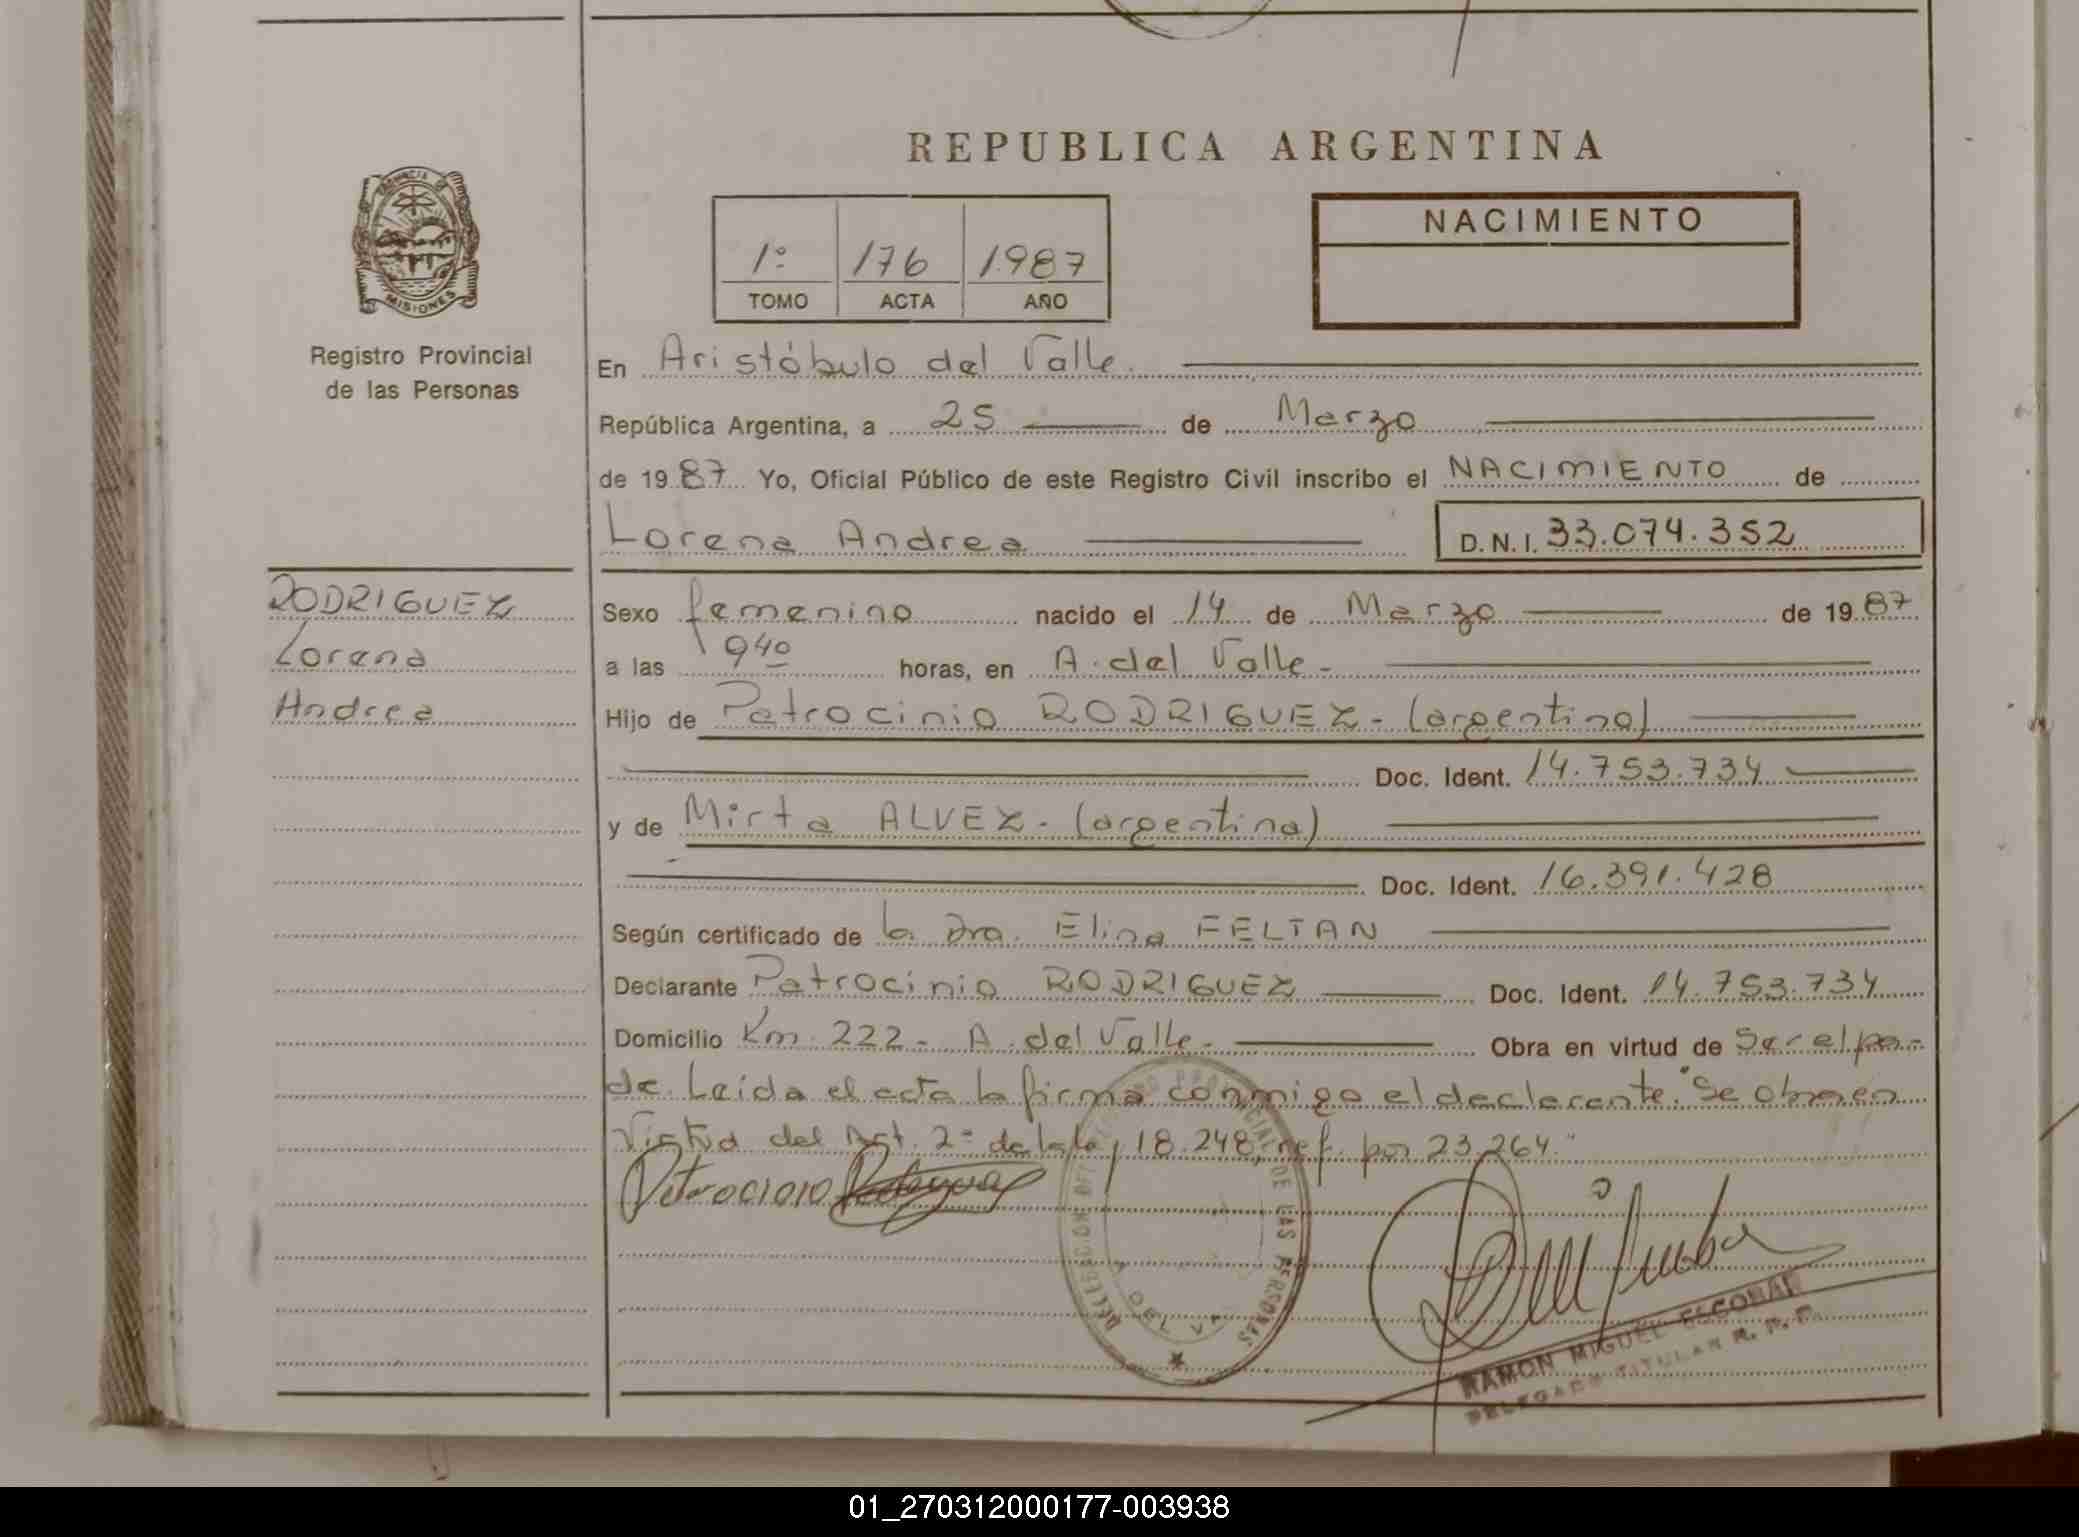 REPUBLICA ARGENTINA
PROVINCIA DE
MISIONES
Registro Provincial
de las Personas
1º 176 1987
TOMO ACTA AÑO
NACIMIENTO
En Aristóbulo del Valle.
República Argentina, a 25 de Marzo
de 1987 Yo, Oficial Público de este Registro Civil inscribo el NACIMIENTO de
Lorena Andrea D.N.I. 33.074.352
RODRIGUEZ
Lorena
Andrea
Sexo femenino nacido el 14 de Marzo de 1987
a las 9 40 horas, en A. del Valle -
Hijo de Patrocinio RODRIGUEZ - (argentino)
Doc. Ident. 14.753.734
y de Mirta ALVEZ - (argentina)
Doc. Ident. 16.391.428
Según certificado de la Dra. Elina FELTAN
Declarante Patrocinio RODRIGUEZ Doc. Ident. 14.753.734
Domicilio Km. 222 - A. del Valle - Obra en virtud de Ser el pa-
dre. Leída el acta la firma conmigo el declarante. "Se obra en
Virtud del Art. 2º de la ley 18.248, ref. por 23.264."
Patrocinio
DELEGACION DEL REGISTRO PROVINCIAL DE LAS PERSONAS
DEL VA
RAMON MIGUEL ESCOBAR
DELEGADO TITULAR R. P. P.
01_270312000177-003938